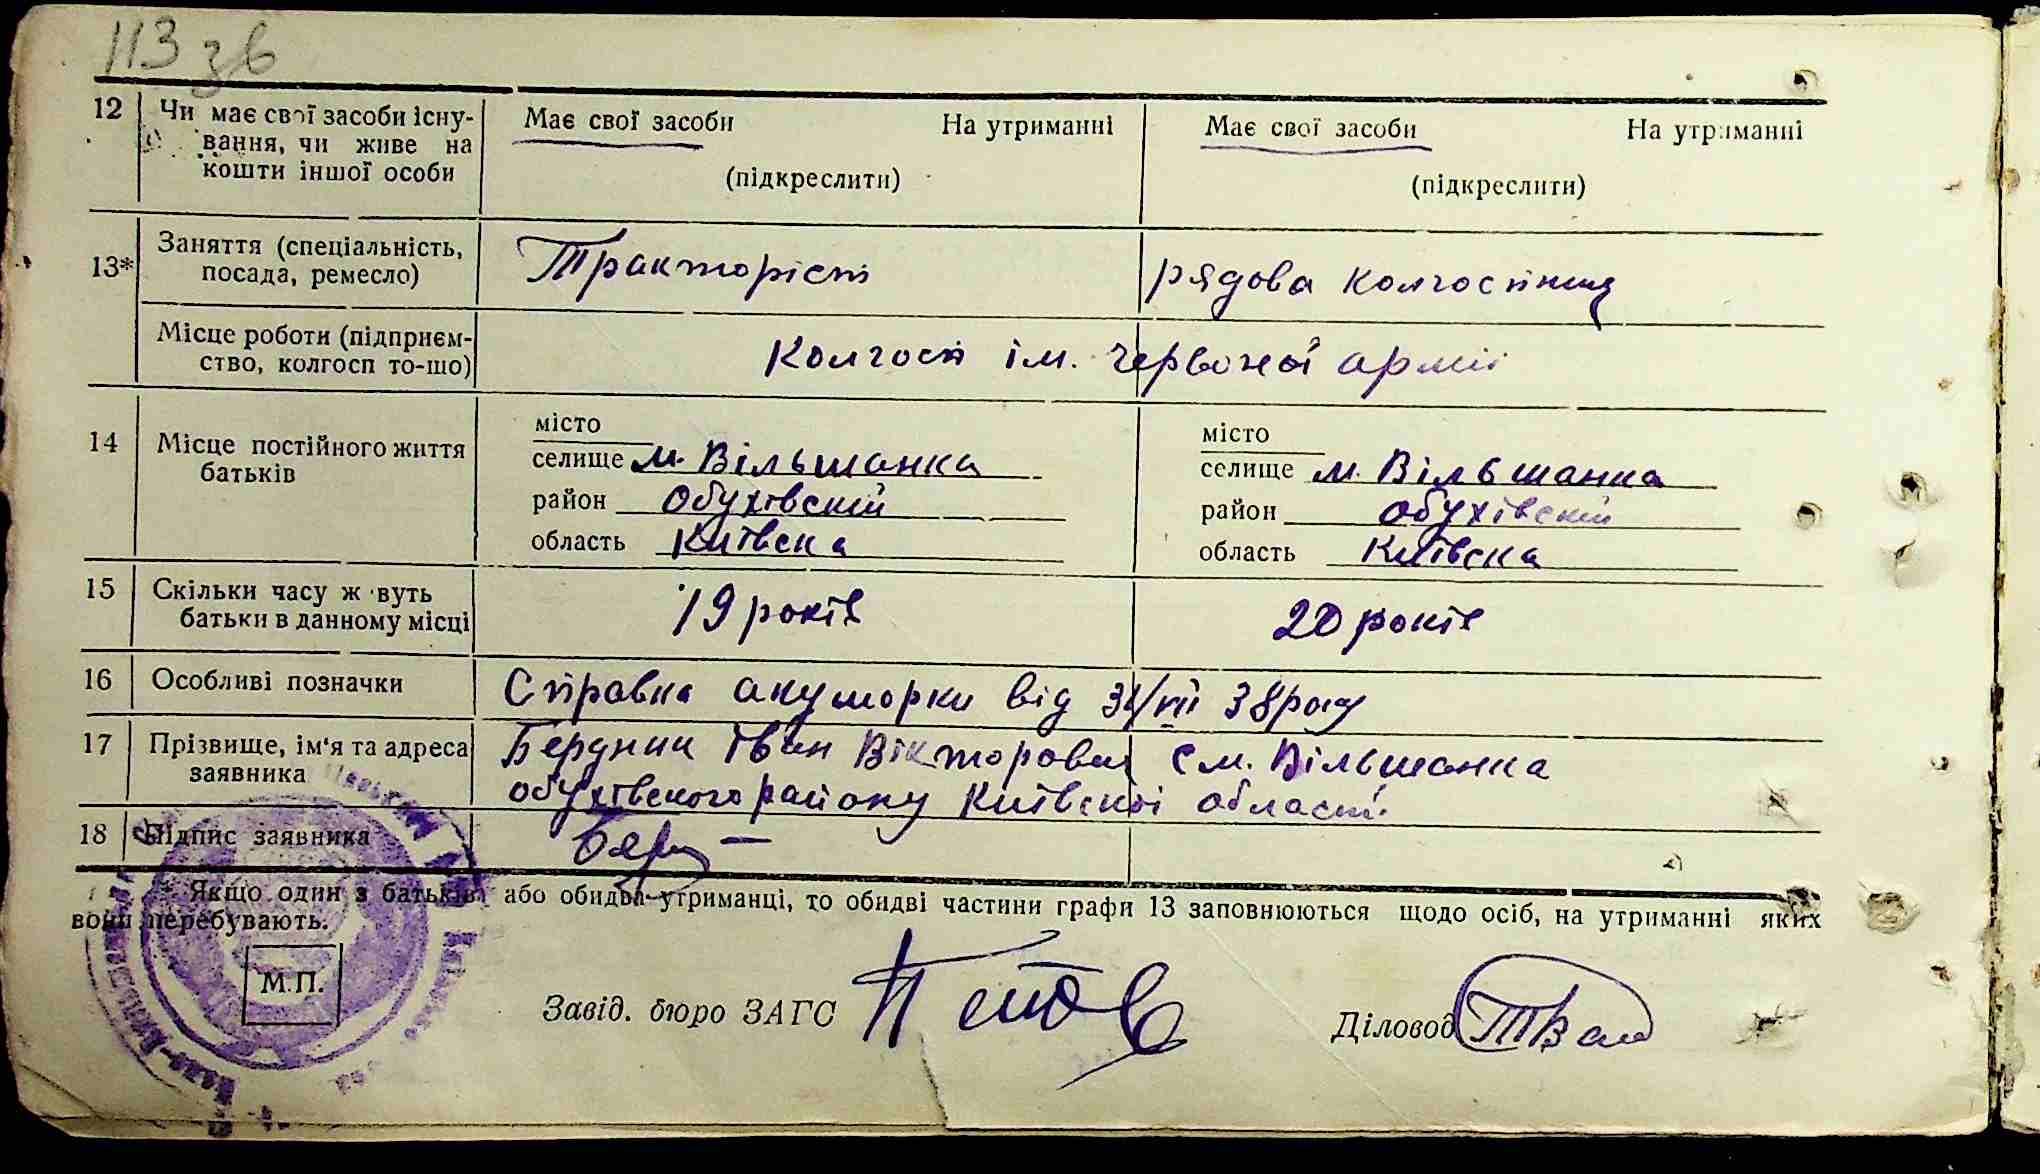 113 зв
12 Чи має свої засоби існу- Має свої засоби На утриманні Має свої засоби На утриманні
вання, чи живе на
кошти іншої особи (підкреслити) (підкреслити)
13* Заняття (спеціальність, Тракторіст рядова колгоспниц
посада, ремесло)
Місце роботи (підприєм- Колгосп ім. Червоної армії
ство, колгосп то-що)
14 Місце постійного життя місто місто
батьків селище м. Вільшанка селище м. Вільшанка
район Обухівский район Обухівский
область Київска область Київска
15 Скільки часу ж вуть 19 років 20 років
батьки в данному місці
16 Особливі позначки Справка акушорки від 31/VII 38 року
17 Прізвище, ім'я та адреса Бердник Іван Вікторович с м. Вільшанка
заявника обухівского району Київскої області.
18 Підпис заявника Бер
* Якщо один з батьків або обидва утриманці, то обидві частини графи 13 заповнюються щодо осіб, на утриманні яких
вони перебувають.
М.П.
Завід. бюро ЗАГС Діловод